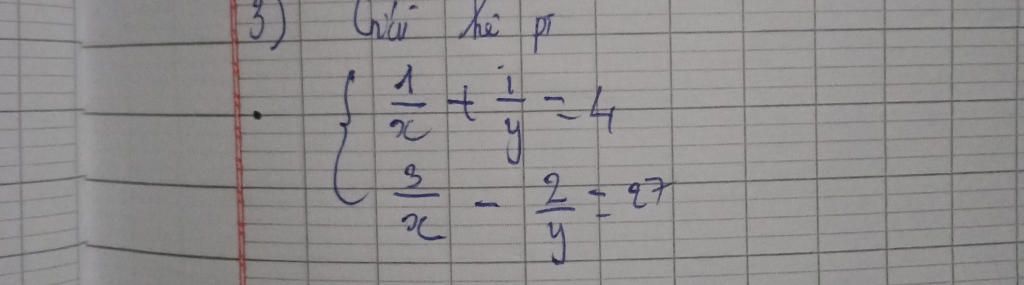 3) Giải hê pt
1/x + 1/y = 4
3/x - 2/y = 27